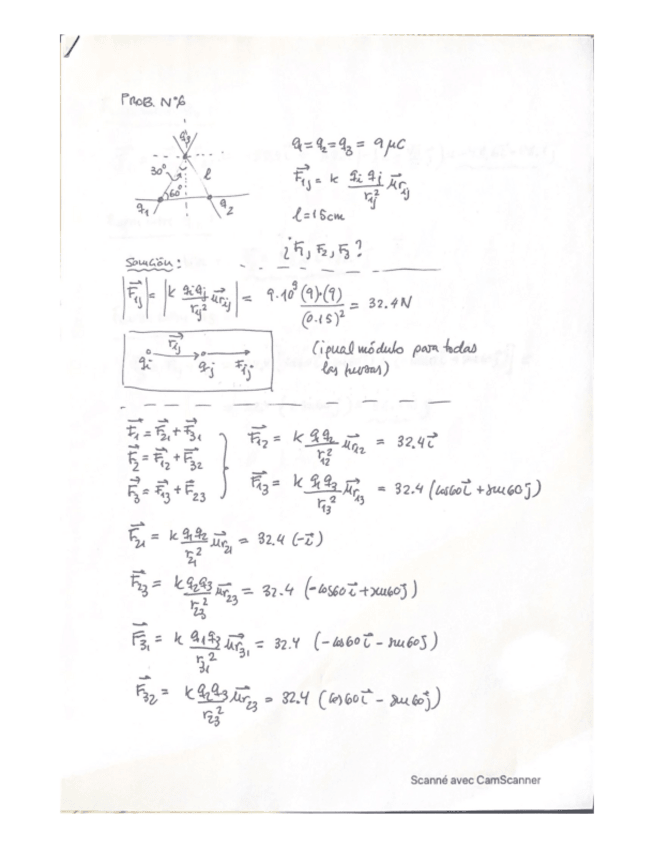 PROB. N°6
q3
30°
l
60°
q1
q2
q1 = q2 = q3 = 9 μC
F⃗ij = k qi qj / rij² u⃗rij
l = 15cm
¿F1, F2, F3?
Solución:
|F⃗ij| = |k qi qj / rij² u⃗rij| = 9·10⁹ (9)·(9) / (0.15)² = 32.4 N
r⃗ij
qi qj F⃗ij
(igual módulo para todas
las fuerzas)
F⃗1 = F⃗21 + F⃗31
F⃗2 = F⃗12 + F⃗32
F⃗3 = F⃗13 + F⃗23
F⃗12 = k q1 q2 / r12² u⃗r12 = 32.4 i⃗
F⃗13 = k q1 q3 / r13² u⃗r13 = 32.4 (cos60 i⃗ + sen60 j⃗)
F⃗21 = k q1 q2 / r21² u⃗r21 = 32.4 (-i⃗)
F⃗23 = k q2 q3 / r23² u⃗r23 = 32.4 (-cos60 i⃗ + sen60 j⃗)
F⃗31 = k q1 q3 / r31² u⃗r31 = 32.4 (-cos60 i⃗ - sen60 j⃗)
F⃗32 = k q2 q3 / r23² u⃗r23 = 32.4 (cos60 i⃗ - sen60 j⃗)
Scanné avec CamScanner